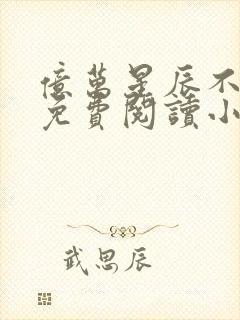 億萬星辰不
免費閱讀小
武思辰